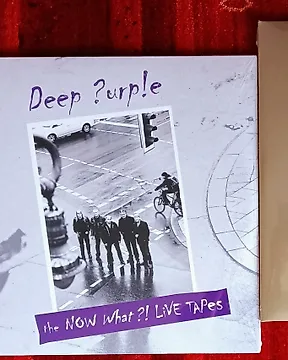 Deep ?urp!e
the NOW What?! LiVE TAPes